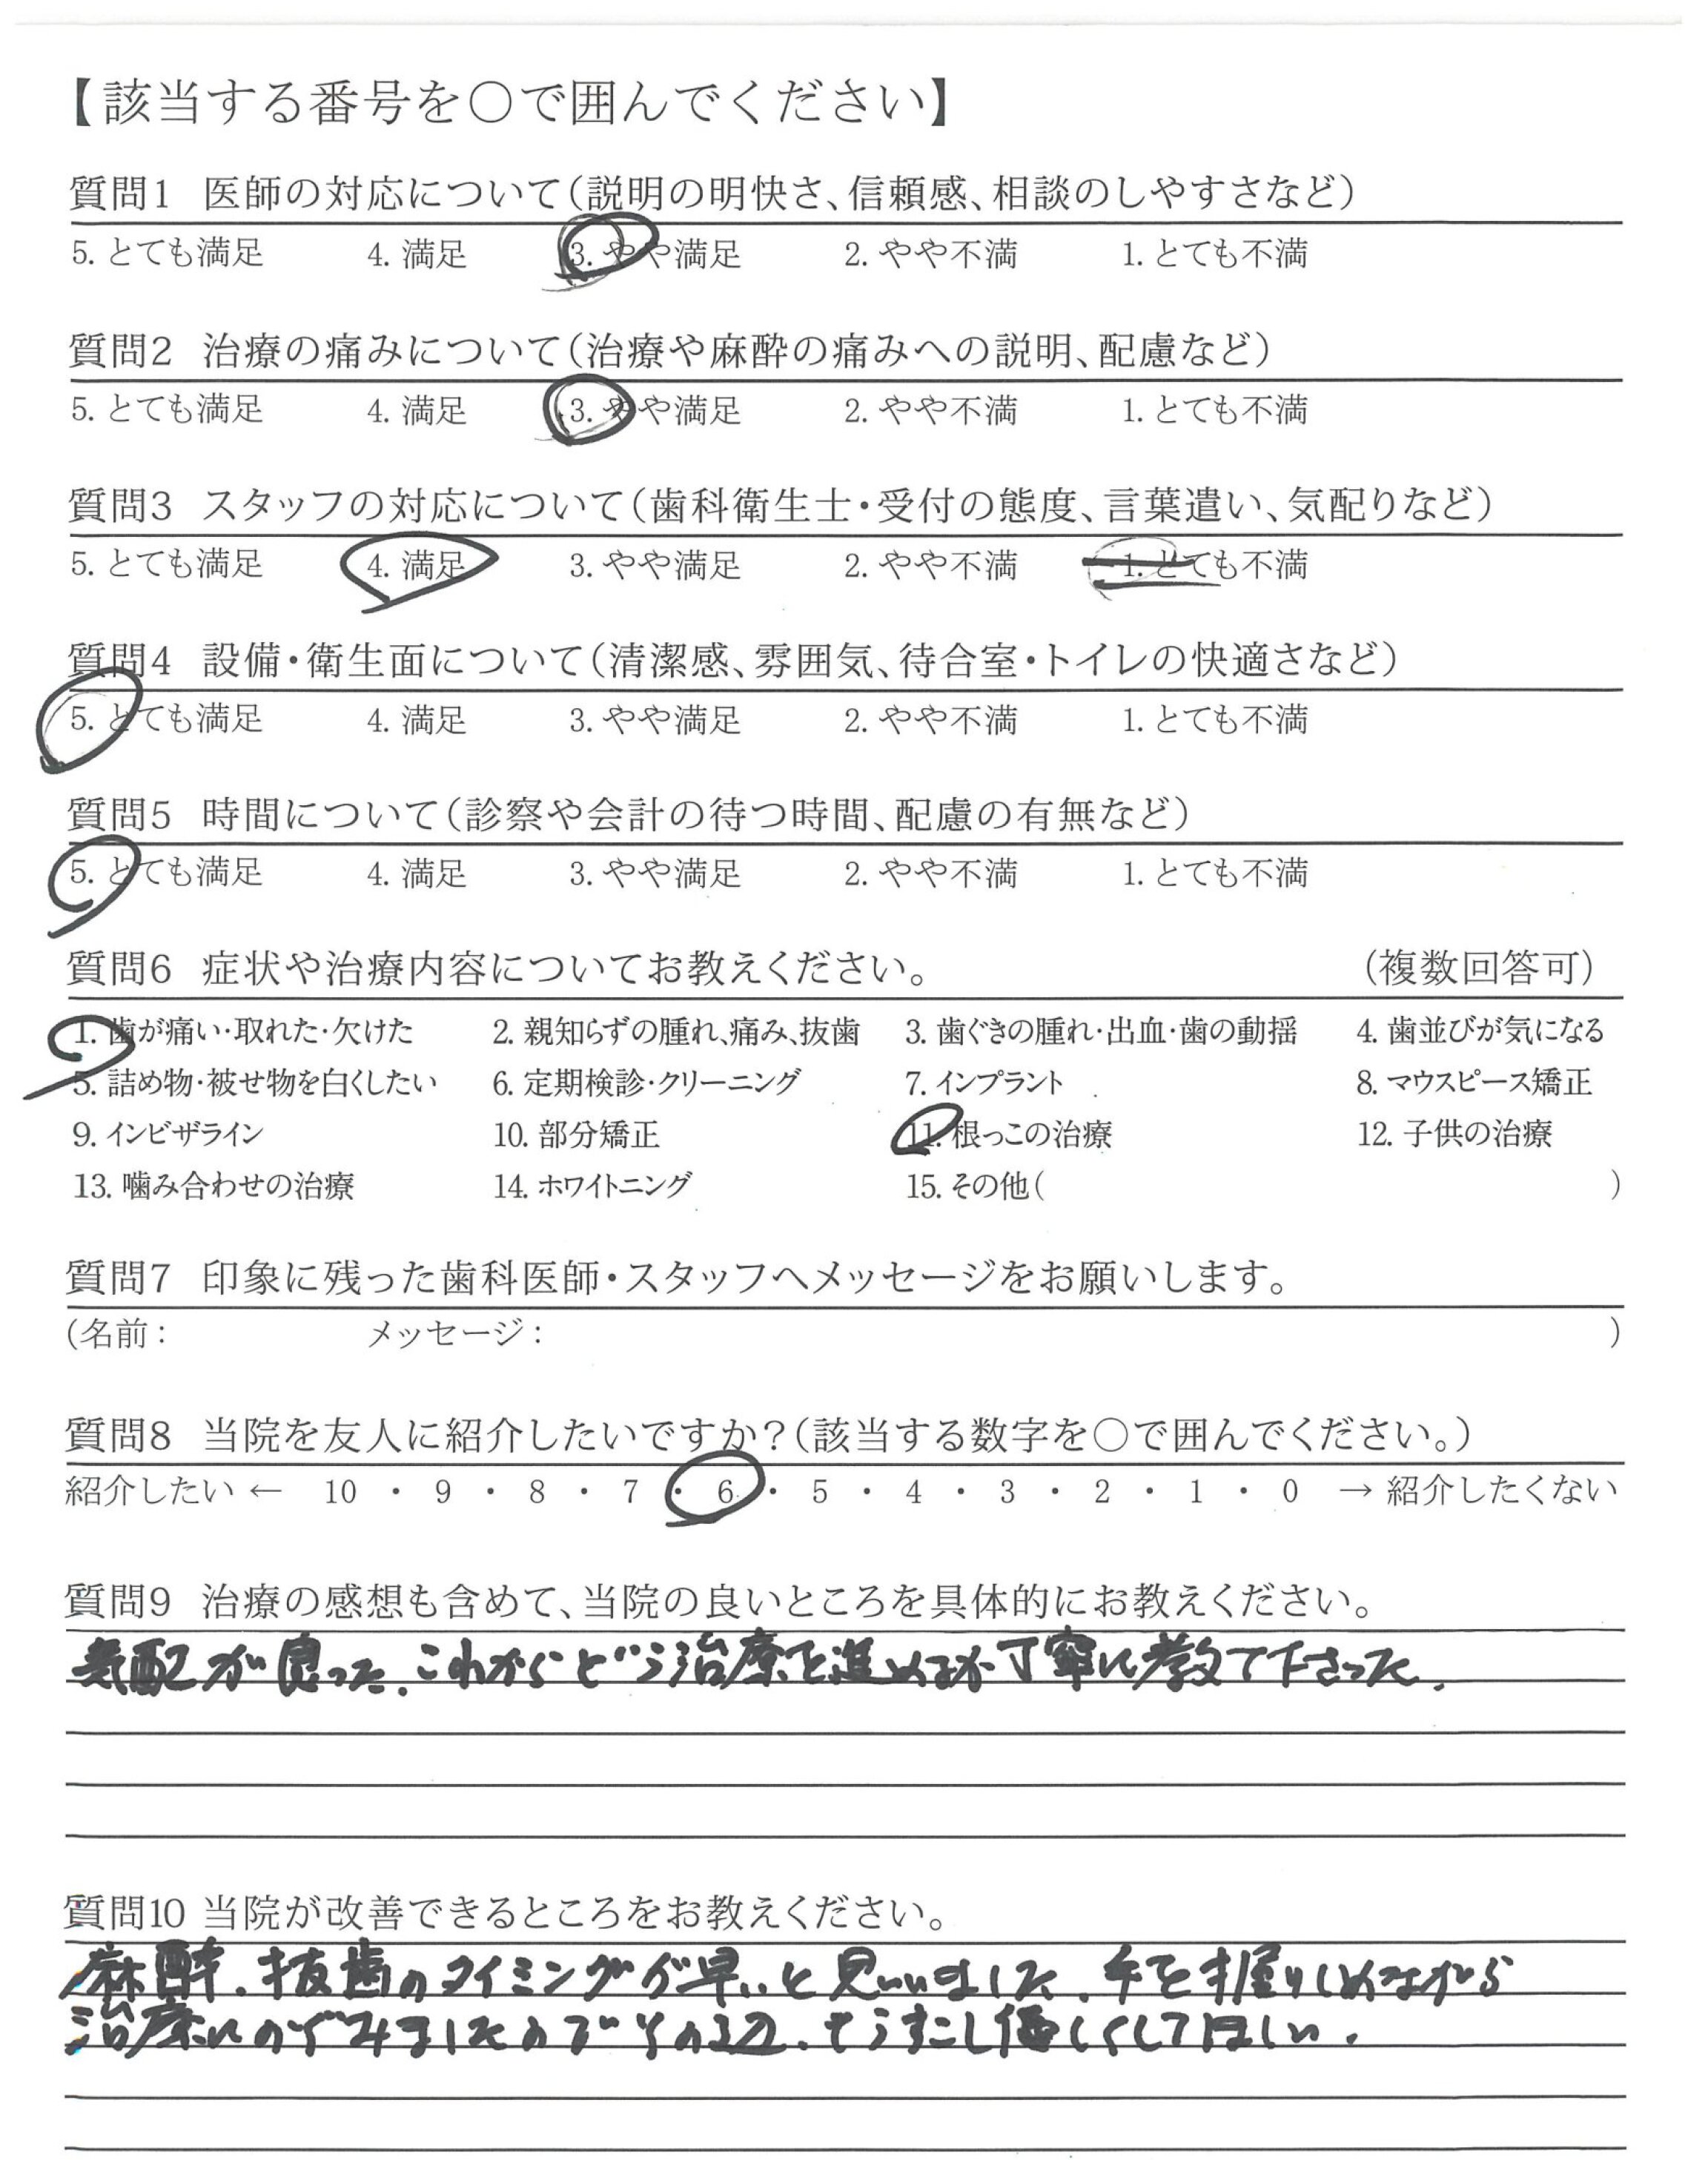 【該当する番号を○で囲んでください】
質問1 医師の対応について(説明の明快さ、信頼感、相談のしやすさなど)
5. とても満足 4. 満足 3. やや満足 2. やや不満 1. とても不満
質問2 治療の痛みについて(治療や麻酔の痛みへの説明、配慮など)
5. とても満足 4. 満足 3. やや満足 2. やや不満 1. とても不満
質問3 スタッフの対応について(歯科衛生士・受付の態度、言葉遣い、気配りなど)
5. とても満足 4. 満足 3. やや満足 2. やや不満 1. とても不満
質問4 設備・衛生面について(清潔感、雰囲気、待合室・トイレの快適さなど)
5. とても満足 4. 満足 3. やや満足 2. やや不満 1. とても不満
質問5 時間について(診察や会計の待つ時間、配慮の有無など)
5. とても満足 4. 満足 3. やや満足 2. やや不満 1. とても不満
質問6 症状や治療内容についてお教えください。 (複数回答可)
1. 歯が痛い・取れた・欠けた 2. 親知らずの腫れ、痛み、抜歯 3. 歯ぐきの腫れ・出血・歯の動揺 4. 歯並びが気になる
5. 詰め物・被せ物を白くしたい 6. 定期検診・クリーニング 7. インプラント 8. マウスピース矯正
9. インビザライン 10. 部分矯正 11. 根っこの治療 12. 子供の治療
13. 噛み合わせの治療 14. ホワイトニング 15. その他( )
質問7 印象に残った歯科医師・スタッフへメッセージをお願いします。
(名前: メッセージ: )
質問8 当院を友人に紹介したいですか?(該当する数字を○で囲んでください。)
紹介したい ← 10 ・ 9 ・ 8 ・ 7 ・ 6 ・ 5 ・ 4 ・ 3 ・ 2 ・ 1 ・ 0 → 紹介したくない
質問9 治療の感想も含めて、当院の良いところを具体的にお教えください。
気配が良った。これからどう治療を進めるか丁寧に教て下さった。
質問10 当院が改善できるところをお教えください。
麻酔、抜歯のタイミングが早いと思いました。手を握りしめながら
治療にのぞみましたのでその辺、もうすこし優しくしてほしい。